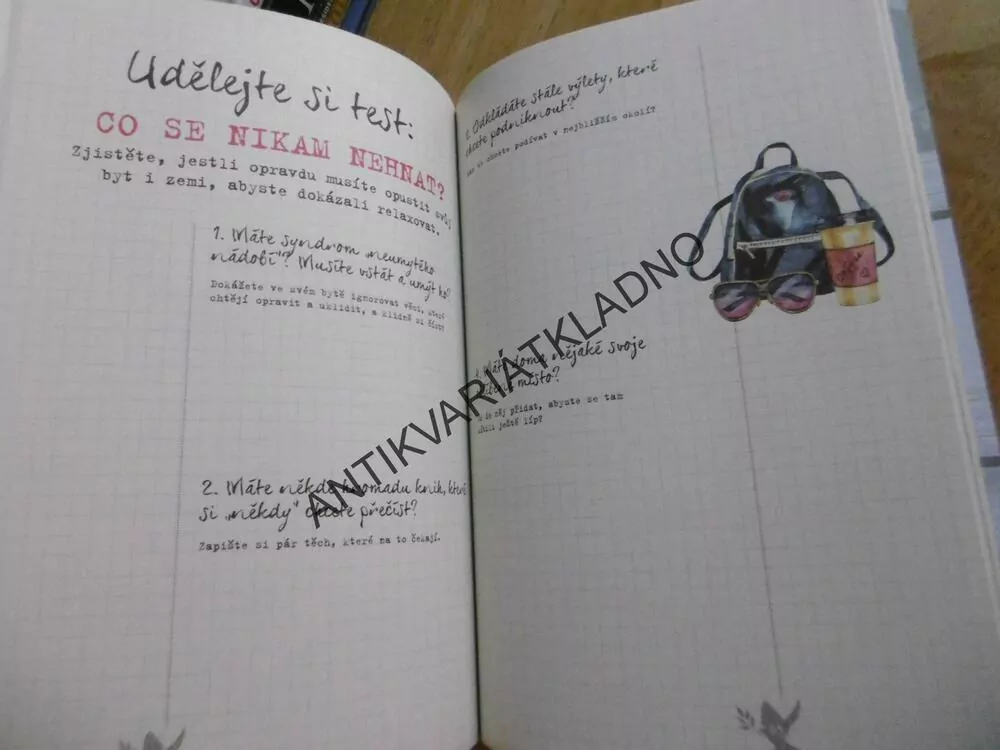 Udělejte si test:
CO SE NIKAM NEHNAT?
Zjistěte, jestli opravdu musíte opustit svůj
byt i zemi, abyste dokázali relaxovat.
1. Máte syndrom „neumytého
nádobí"? Musíte vstát a umýt ho?
Dokážete ve svém bytě ignorovat věci, které
chtějí opravit a uklidit, a klidně si číst?
2. Máte někde hromadu knih, které
si „někdy" chcete přečíst?
Zapište si pár těch, které na to čekají.
Odkládáte stále výlety, které
chcete podniknout?
se chcete podívat v nejbližším okolí?
Máte doma nějaké svoje
místo?
něj přidat, abyste se tam
ještě líp?
ANTIKVARIÁTKLADNO